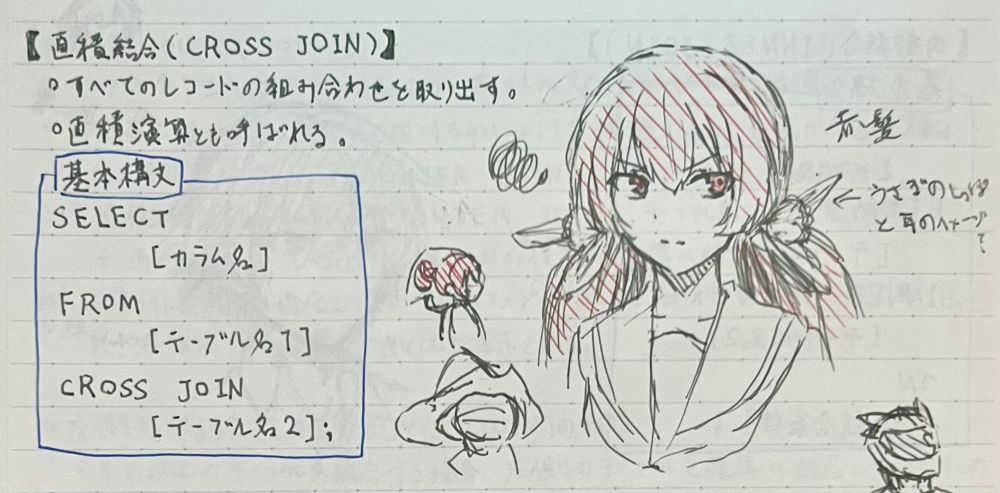 【直積結合(CROSS JOIN)】
○すべてのレコードの組み合わせを取り出す。
○直積演算とも呼ばれる。
基本構文
SELECT
[カラム名]
FROM
[テーブル名1]
CROSS JOIN
[テーブル名2];
赤髪
←うさぎの
と耳のイメージ?